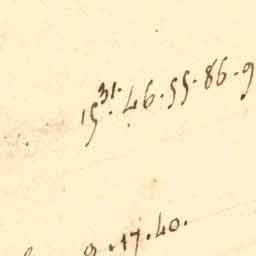 31.
15.46.55.86.9
9.17.40.